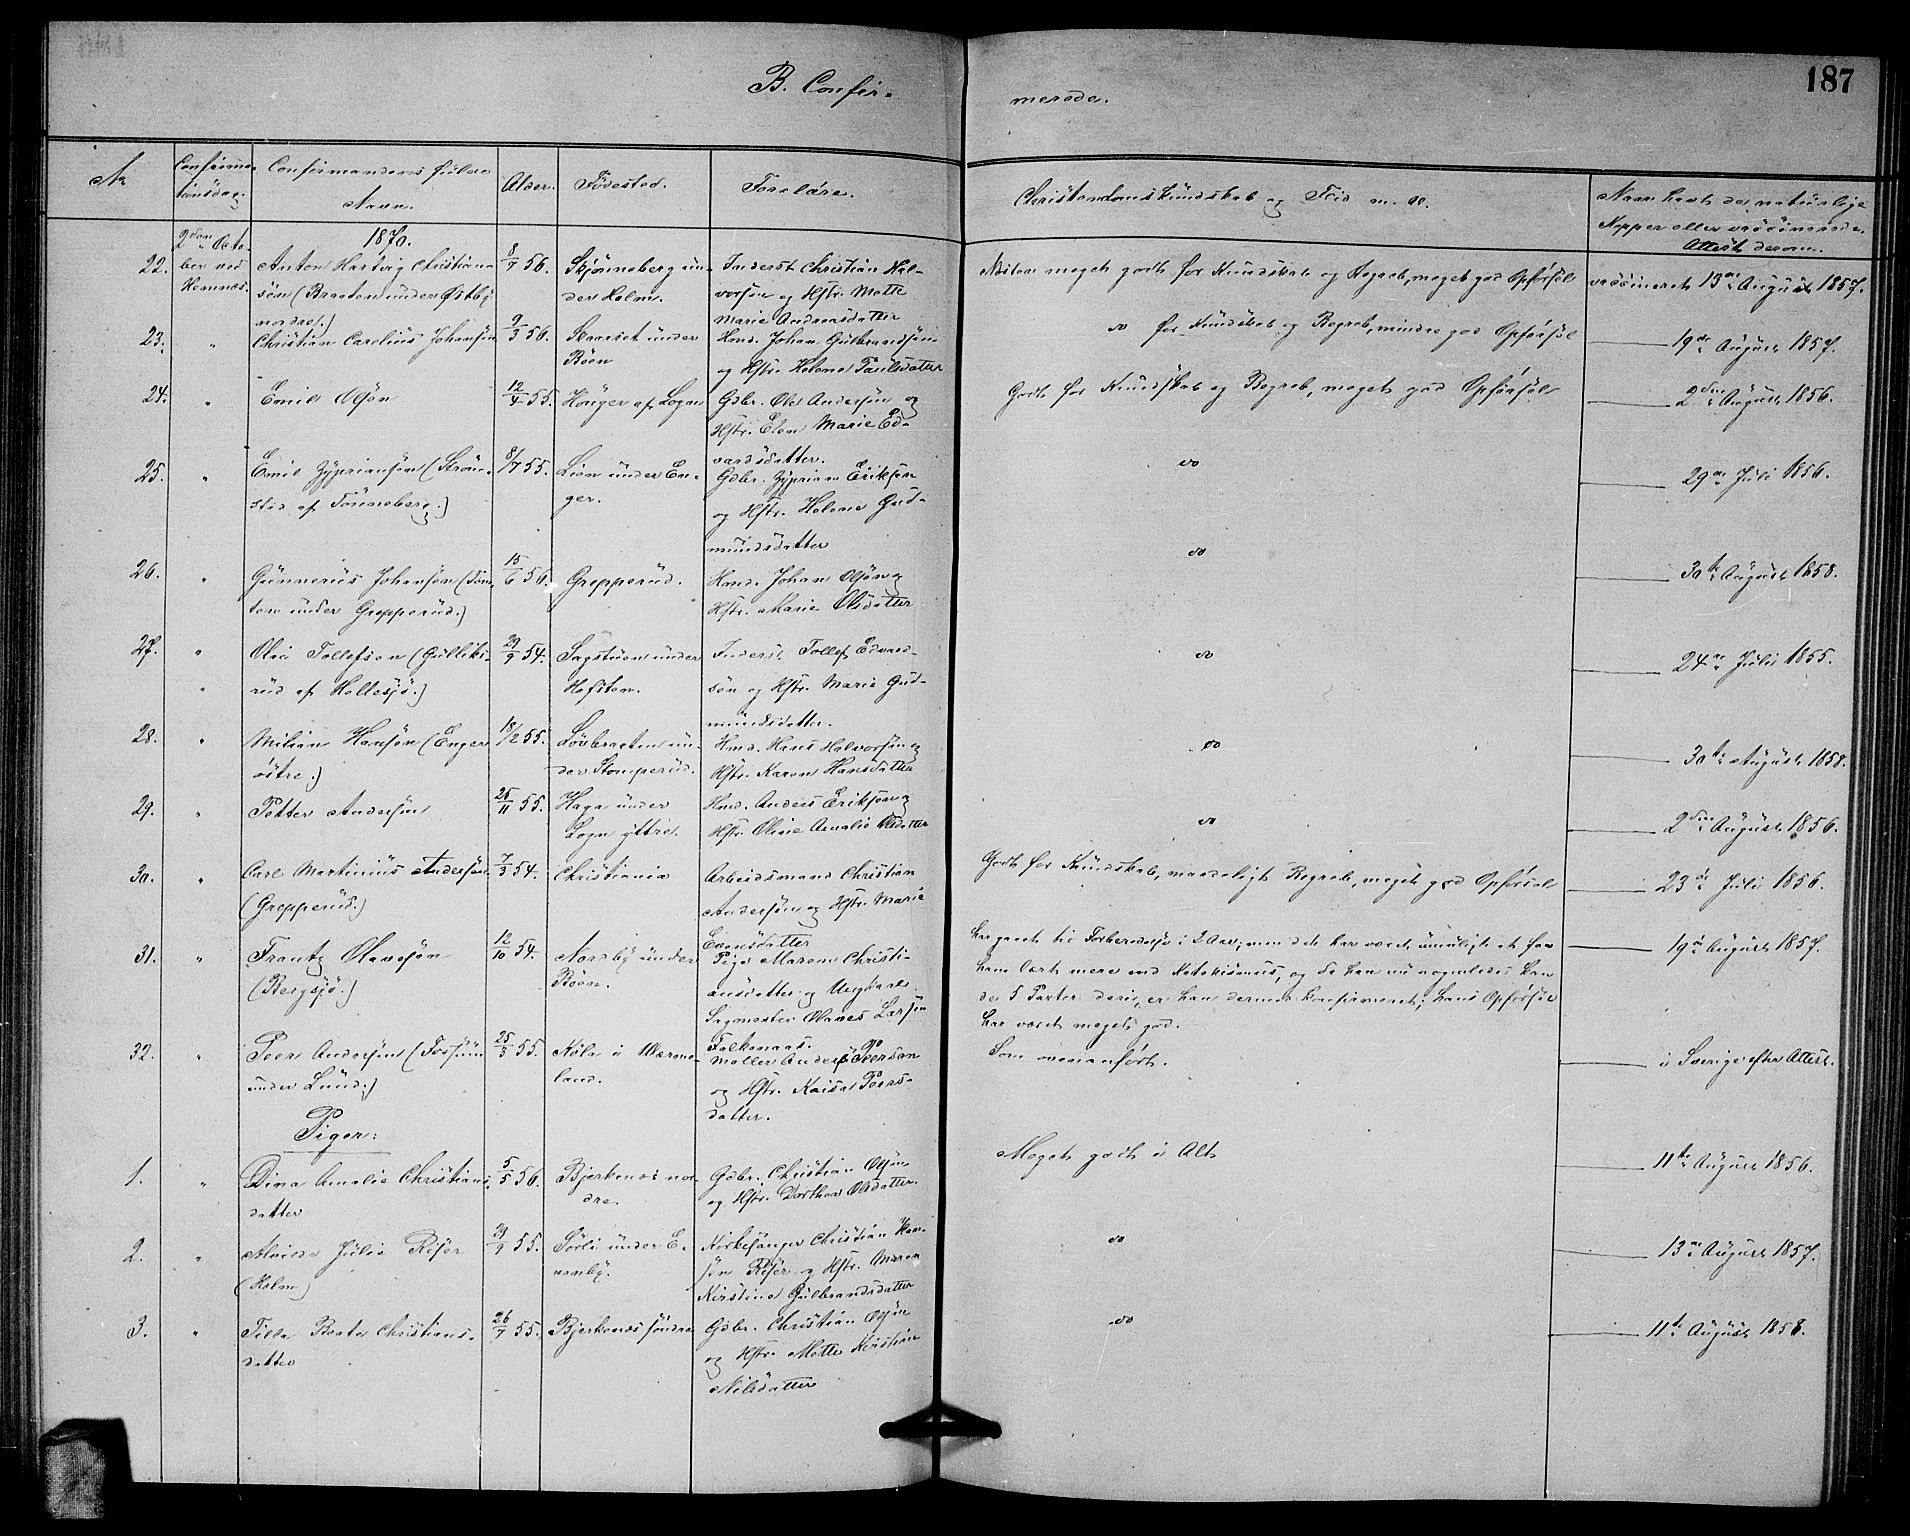 187
B. Confir-
merede.
No
Confirma-
tionsdag.
Confirmandens fulde
Navn.
Alder.
Fødested.
Forældre.
Christendomskundskab og Flid m. v.
Naar havt de naturlige
Kopper eller vaccinerede.
Attest derom.
1870.
22.
2den Octo-
ber ved
Hemnæs.
Anton Hartvig Christian-
sön (Braaten under Østby
nordre.)
8/7 56.
Skjønneberg un-
der Holm.
Inderst Christian Hal-
vorsön og Hstr. Mette
Marie Andreasdatter
Næsten meget godt for Kundskab og Begreb, meget god Opførsel
vaccineret 13de August 1857.
23.
"
Christian Carelius Johansen
9/3 56.
under
Böen
Hmd. Johan Gulbrandsön
og Hstr. Helene Paulsdatter
do for Kundskab og Begreb, mindre god Opførsel
19de August 1857.
24.
"
Emil Olsön
12/4 55.
Hönger af Logn
Gdbr. Ole Andersön og
Hstr. Elen Marie Ed-
vardsdatter.
Godt for Kundskab og Begreb, meget god Opførsel
2den August 1856.
25.
"
Emil Zyprianson (Ström-
stad af Tönneberg.)
8/7 55.
Lien under En-
ger.
Gdbr. Zyprian Eriksen
og Hstr. Helene Gud-
mundsdatter
do
29de Juli 1856.
26.
"
Gunnerius Johansen (Tom-
ten under Grepperud.)
15/6 56.
Grepperud.
Hmd. Johan Olsön og
Hstr. Marie Olsdatter
do
30te August 1858.
27.
"
"
Olai Tollefsen (Gulliks-
rud af Hellesjö.)
29/9 54.
Sagstuen under
Hofsten.
Inderst Tollef Edvard-
sön og Hstr. Marie Gud-
mundsdatter.
do
24de Juli 1855.
28.
"
Milian Hansön (Enger
østre.)
18/2 55.
Lövbraaten un-
der Stomperud.
Hmd. Hans Halvorsön og
Hstr. Karen Hansdatter
do
30te August 1858.
29.
"
Petter Andersön
25/11 55.
Haga under
Logn yttre.
Hmd. Anders Eriksön og
Hstr. Oline Amalie Olsdatter
do
2den August 1856.
30.
"
Carl Martinius Andersön
(Grepperud.)
7/3 54.
Christiania
Arbeidsmand Christian
Andersön og Hstr. Marie
Evensdatter
Godt for Kundskab, maadeligt Begreb, meget god Opførsel
23de Juli 1856.
31.
"
Frantz Olavesön
(Bergsjö.)
12/10 54.
Nordby under
Böen.
Pige Maren Christi-
ansdatter og Ungkarl
Sagmester Olaves Larsön
Falkenaas.
Har gaaet til Forberedelse i 2 Aar; men det har været umuligt at faa
ham lært mere end Katekismus, og da han nu nogenledes kan
de 5 Parter deri, er han dermed konfirmeret; hans Opførsel
har været meget god.
19de August 1857.
32.
"
Peer Andersön (Fossum
under Lund.)
25/3 55.
Köla i Værme-
land.
Møller Anders Peersen
og Hstr. Kaisa Peers-
datter.
Som ovenanført.
i Sverige efter Attest.
Piger:
1.
"
Dina Amalie Christians-
datter
5/5 56.
Bjerkenæs nor-
dre.
Gdbr. Christian Olsön
og Hstr. Dorthea Olsdatter.
Meget godt i Alt
11te August 1856.
2.
"
Alvilde Julie Riser
(Holm)
29/9 55.
Sørli under E-
nenby.
Kirkesanger Christian Han-
sön Riser og Hstr. Maren
Kirstine Gulbrandsdatter
do
13de August 1857.
3.
"
Tilla Beate Christians-
datter
26/7 55.
Bjerkenæs søndre
Gdbr. Christian Olsön
og Hstr. Mette Kirstine
Nilsdatter
do
11te August 1858.